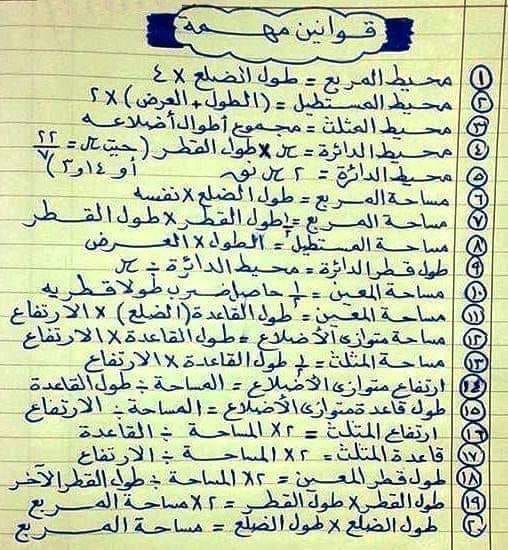 قوانين مهمة
١ محيط المربع = طول الضلع × ٤
٢ محيط المستطيل = (الطول + العرض) × ٢
٣ محيط المثلث = مجموع أطوال أضلاعه
٤ محيط الدائرة = π × طول القطر (حيث π = ٢٢/٧
٥ محيط الدائرة = ٢ π نق أو ٣٫١٤)
٦ مساحة المربع = طول الضلع × نفسه
٧ مساحة المربع = ١/٢ طول القطر × طول القطر
٨ مساحة المستطيل = الطول × العرض
٩ طول قطر الدائرة = محيط الدائرة ÷ π
١٠ مساحة المعين = ١/٢ حاصل ضرب طولا قطريه
١١ مساحة المعين = طول القاعدة (الضلع) × الارتفاع
١٢ مساحة متوازى الأضلاع = طول القاعدة × الارتفاع
١٣ مساحة المثلث = ١/٢ طول القاعدة × الارتفاع
١٤ ارتفاع متوازى الأضلاع = المساحة ÷ طول القاعدة
١٥ طول قاعدة متوازى الأضلاع = المساحة ÷ الارتفاع
١٦ ارتفاع المثلث = ٢ × المساحة ÷ القاعدة
١٧ قاعدة المثلث = ٢ × المساحة ÷ الارتفاع
١٨ طول قطر المعين = ٢ × المساحة ÷ طول القطر الآخر
١٩ طول القطر × طول القطر = ٢ × مساحة المربع
٢٠ طول الضلع × طول الضلع = مساحة المربع